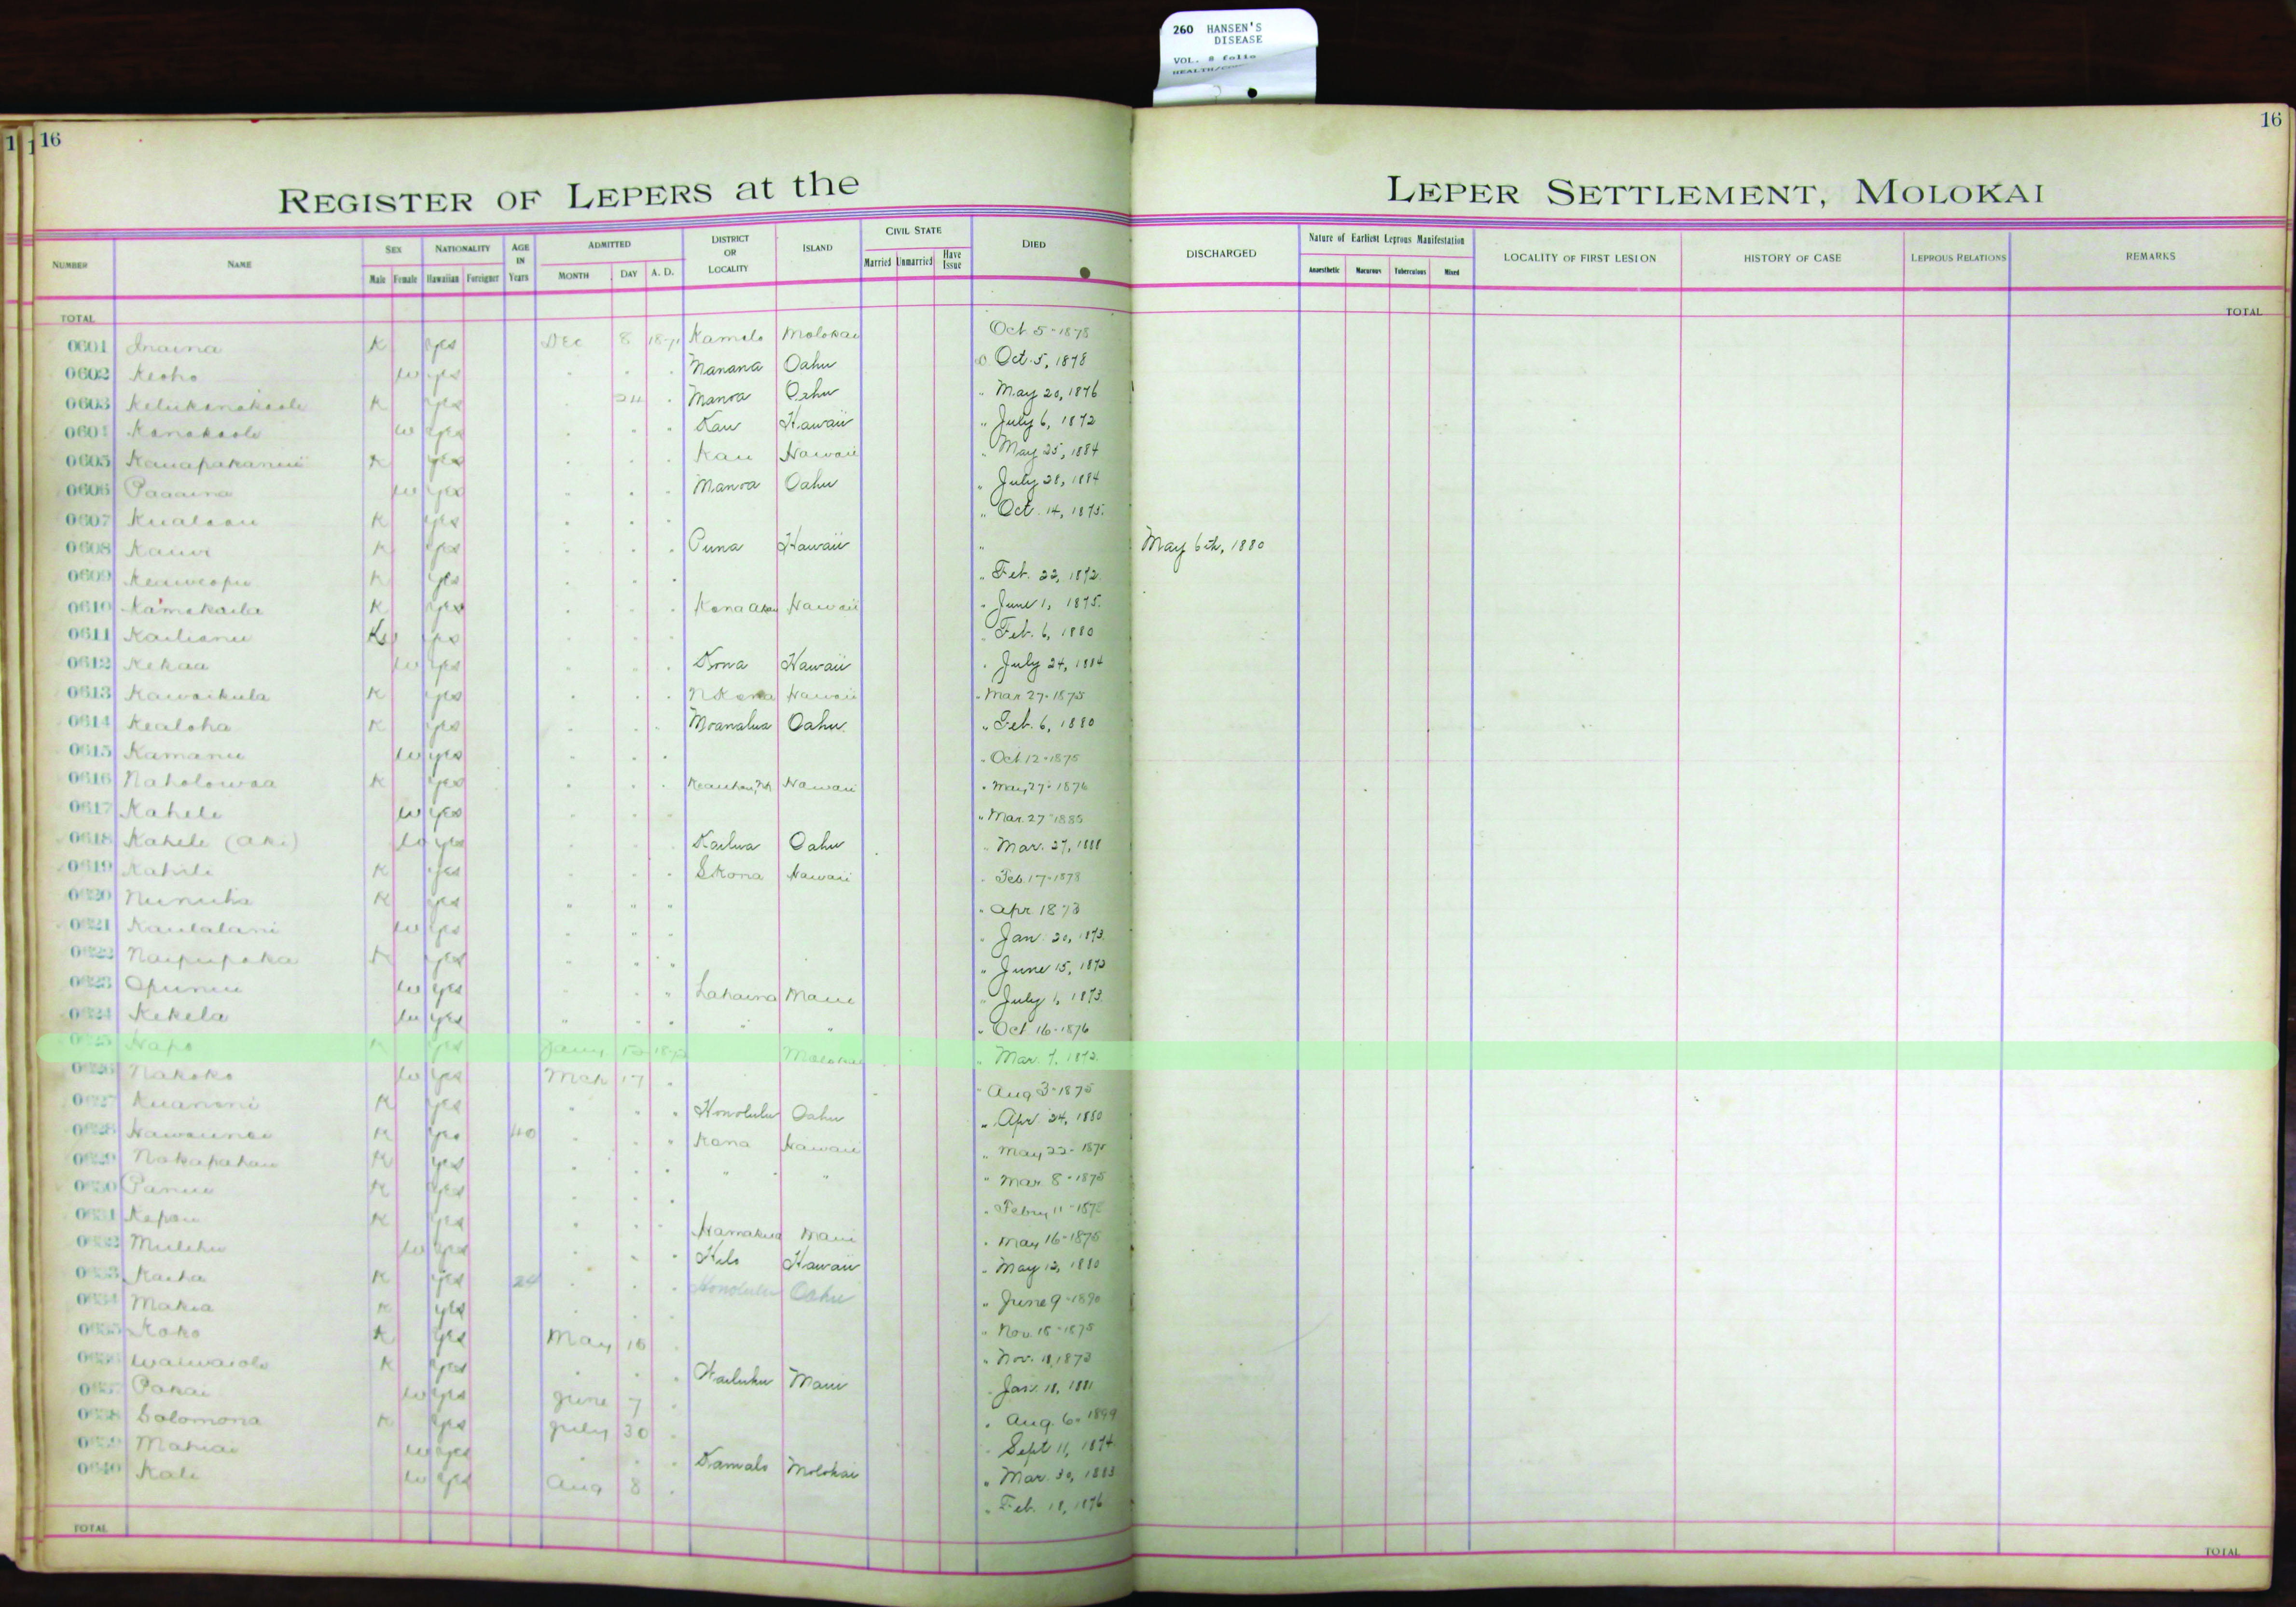 260 HANSEN'S
DISEASE
VOL. 8 folio
16
16
REGISTER OF LEPERS at the LEPER SETTLEMENT, MOLOKAI
NUMBER NAME SEX NATIONALITY AGE IN Years ADMITTED DISTRICT OR LOCALITY ISLAND CIVIL STATE DIED DISCHARGED Nature of Earliest Leprous Manifestation LOCALITY OF FIRST LESION HISTORY OF CASE LEPROUS RELATIONS REMARKS
Male Female Hawaiian Foreigner MONTH DAY A. D. Married Unmarried Have Issue Anaesthetic Macurous Tuberculous Mixed
TOTAL TOTAL
0601 Inaina K yes Dec 8 Kamalo Molokai Oct 5-1878
0602 Keoho w yes Manana Oahu Oct. 5, 1878
0603 K yes 24 Manoa Oahu " May 20, 1876
0604 Kanakaole w yes Kau Hawaii " July 6, 1872
0605 K yes Kau Hawaii " May 25, 1884
0606 Paaaina w yes Manoa Oahu " July 28, 1884
0607 Kualaau K yes " Oct. 14, 1875.
0608 Kauwi K yes Puna Hawaii " May 6th, 1880
0609 Keaweopu K yes " Feb. 22, 1872.
0610 Kamakaila K yes Kona Akau Hawaii " June 1, 1875.
0611 Kailianu yes " Feb. 6, 1880
0612 Kekaa w yes Kona Hawaii " July 24, 1884
0613 Kawaikula K yes N Kona Hawaii " Mar 27-1875
0614 Kealoha K yes Moanalua Oahu " Feb. 6, 1880
0615 Kamanu w yes " Oct 12-1875
0616 Naholowaa K yes Hawaii " May 27-1876
0617 Kahele w yes " Mar. 27-1885
0618 Kahele (aki) w yes Kailua Oahu " Mar. 27, 1888
0619 K yes S Kona Hawaii " Feb. 17-1878
0620 K yes " " " " Apr. 1873
0621 Kaulalani w yes " Jan. 20, 1873.
0622 K yes " June 15, 1873
0623 Opunui w yes Lahaina Maui " July 1, 1873.
0624 Kekela w yes " " " Oct 16-1876
0625 Hapo K yes Jany Molokai " Mar. 7, 1872.
0626 Nakoko w yes Mch 17 " Aug 3-1875
0627 K yes Honolulu Oahu " Apr. 24, 1880
0628 K yes 40 Kona Hawaii " May 22-
0629 Nakapahau K yes " " " Mar. 8-1875
0630 Panui K yes " Febry 11-
0631 Kepau K yes Hamakua Maui " May 16-1875
0632 w yes Hilo Hawaii " May 12, 1880
0633 Kaiha K yes 24 Honolulu Oahu " June 9-1890
0634 Makia K yes " Nov. 18-1875
0635 Koko K yes May " Nov. 11, 1873
0636 Waiwaiole K yes Wailuku Maui " Jan. 18, 1881
0637 Pakai w yes June 7 " Aug. 6. 1899
0638 Solomona K yes July 30 " Sept 11, 1874
0639 Mahiai w yes Kamalo Molokai " Mar. 30, 1883
0640 Kali w yes Aug 8 " Feb. 18, 1876
TOTAL TOTAL